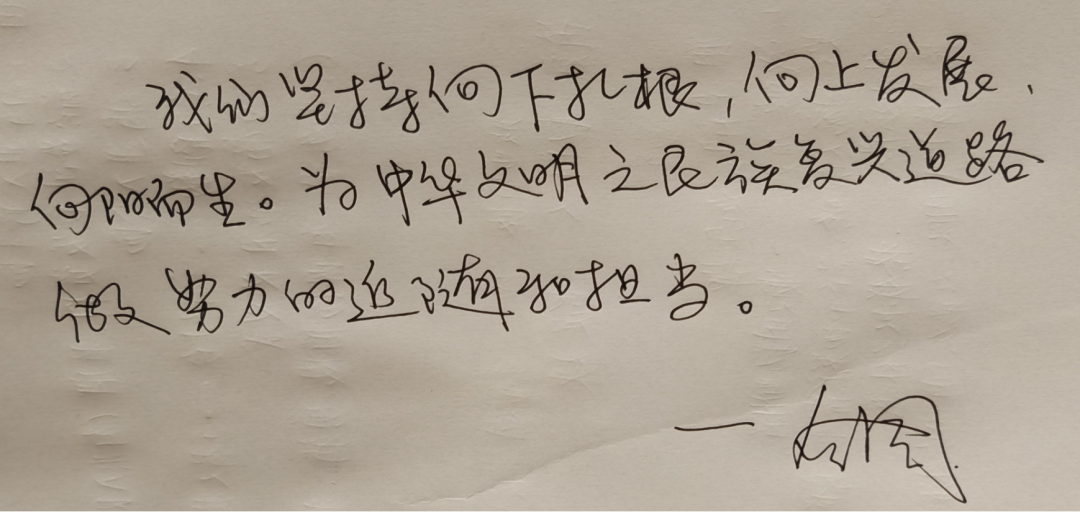 我们坚持向下扎根，向上发展，
向阳而生。为中华文明之民族复兴道路
做努力的追随和担当。